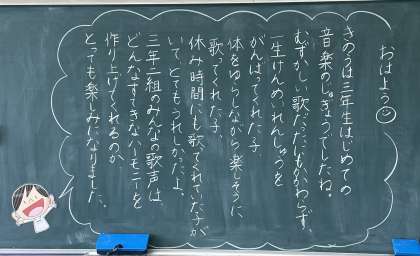 おはよう☺
きのうは三年生はじめての
音楽のじゅぎょうでしたね。
むずかしい歌だったにもかかわらず、
一生けんめいれんしゅうを
がんばってくれた子、
体をゆらしながら楽しそうに、
歌ってくれた子、
休み時間にも歌ってくれていた子が
いて、とてもうれしかったよ。
三年二組のみんなの歌声は
どんなすてきなハーモニーを
作り上げてくれるのか
とっても楽しみになりました。